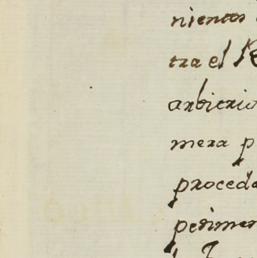 nientos
tra el
arbitrio
mera p
proceda
pedimen